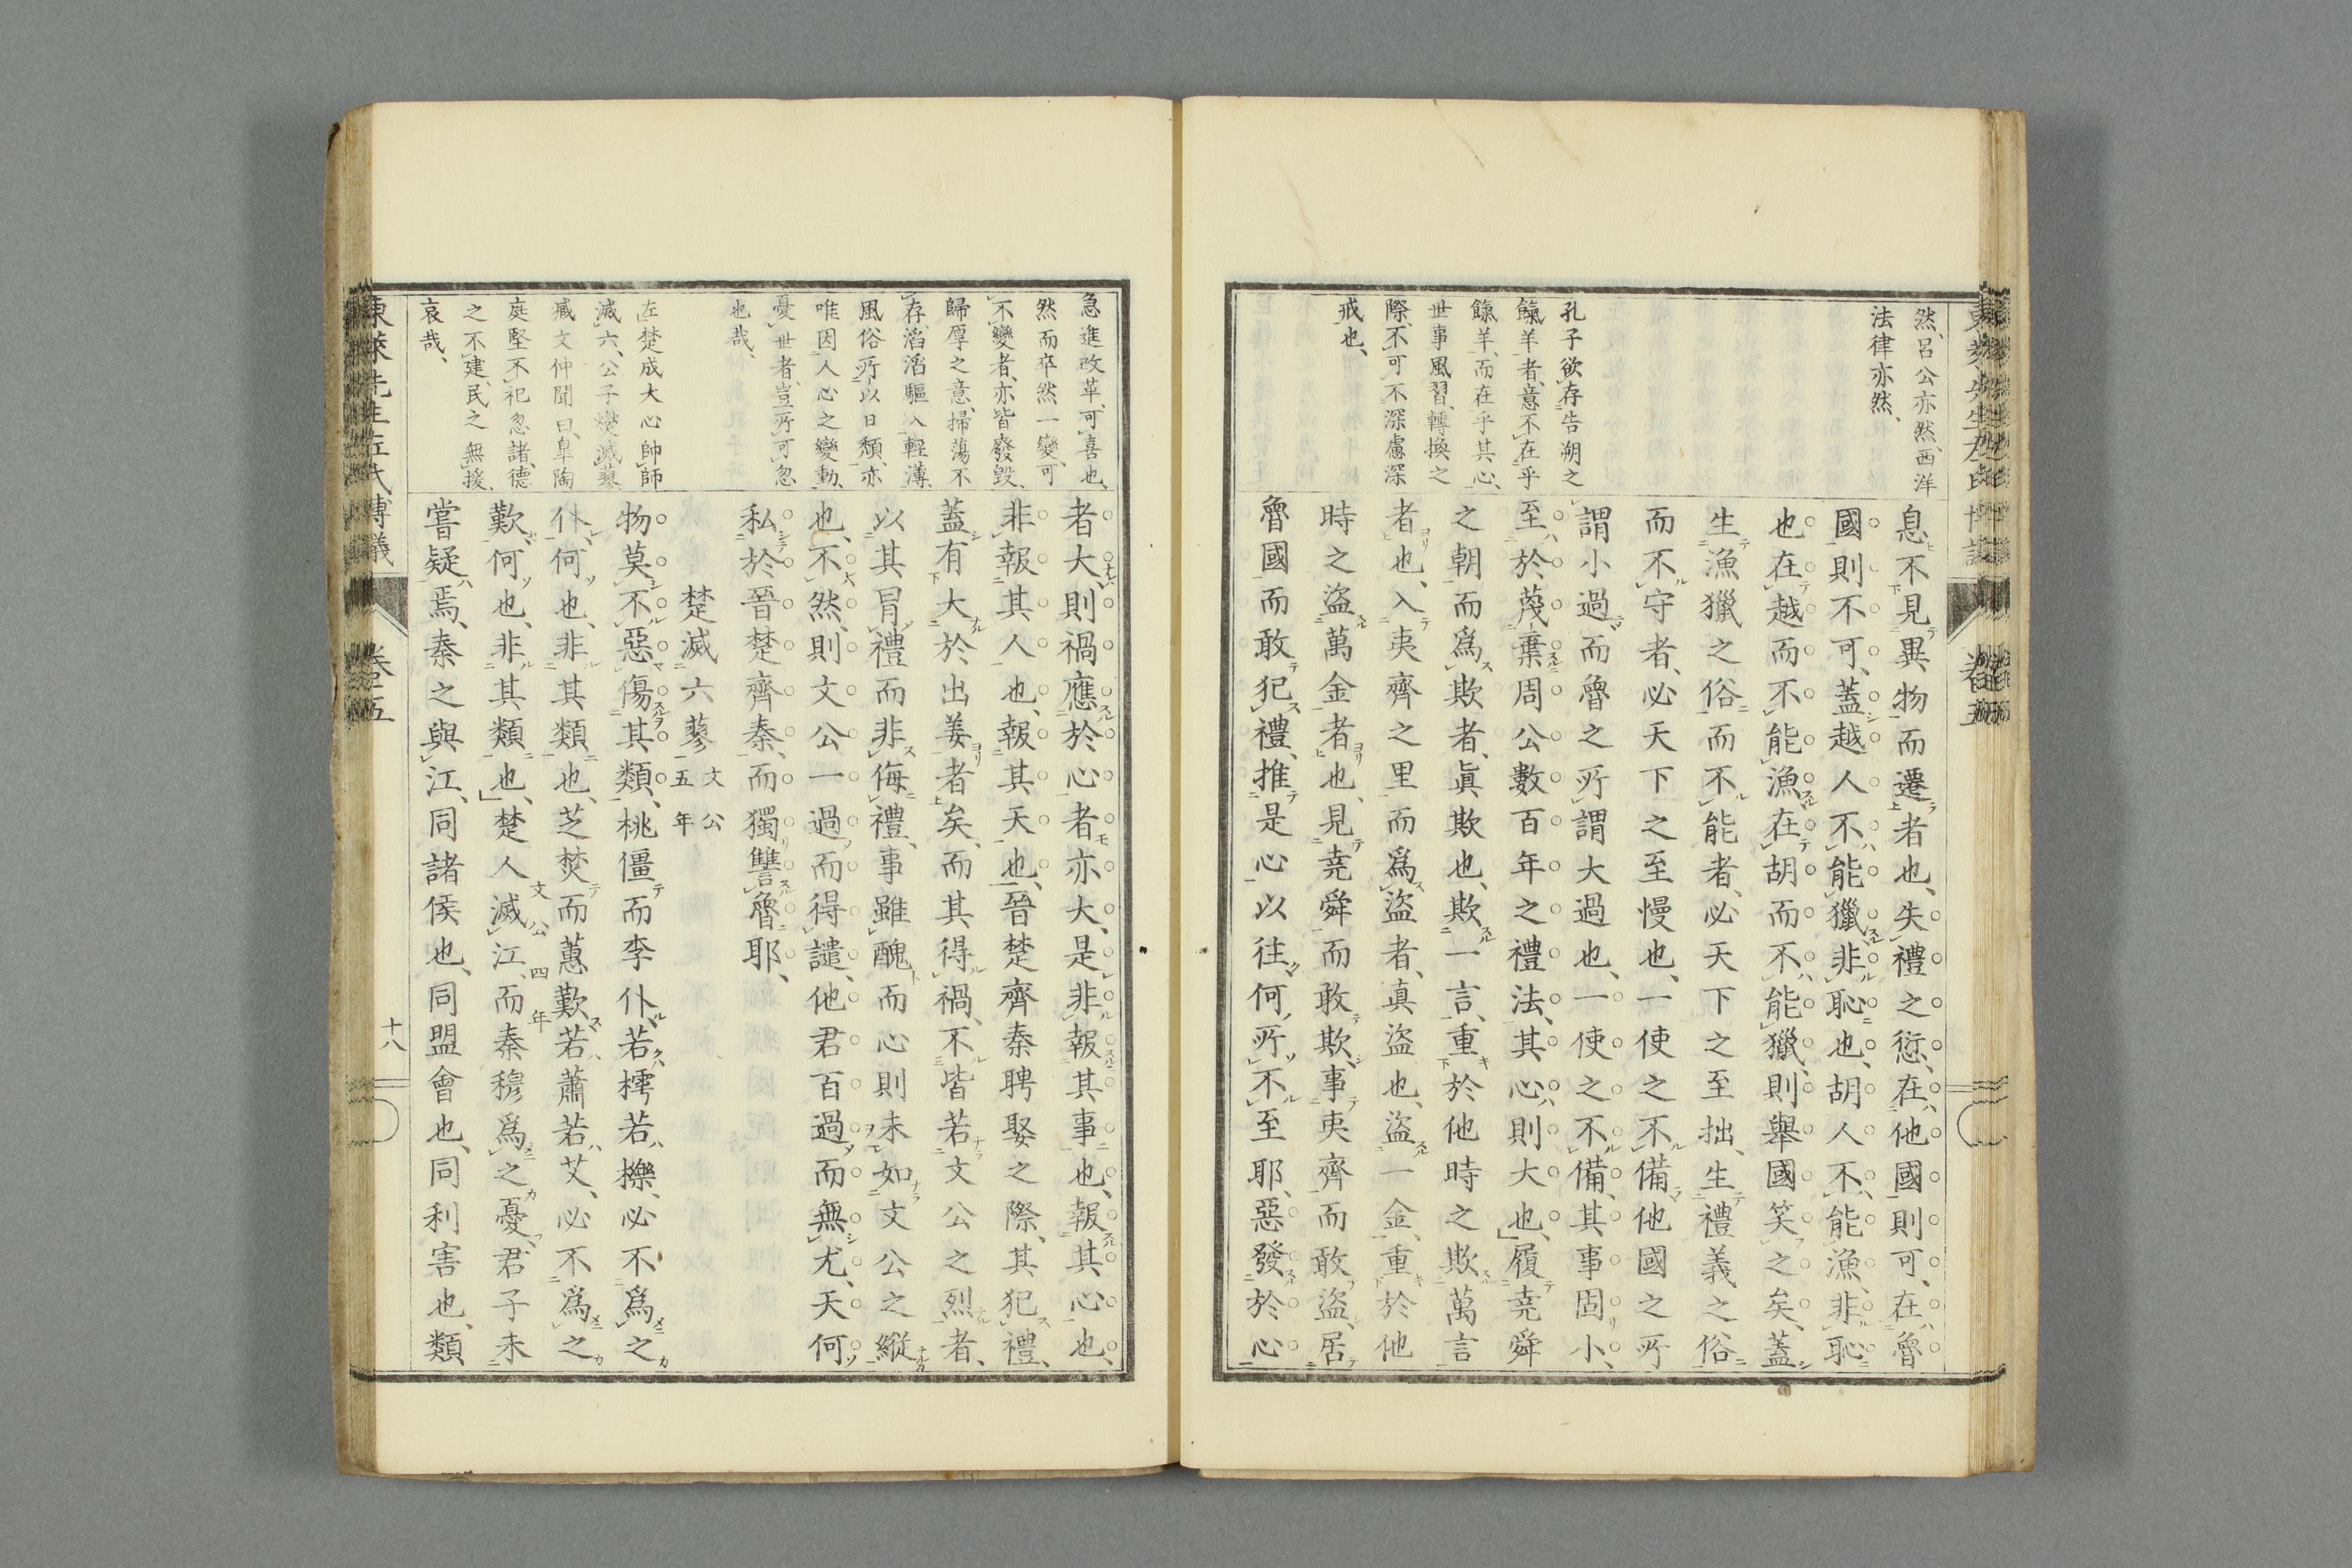 然、呂公亦然、西洋
法律亦然、
孔子欲存告朔之
餼羊者、意不在乎
餼羊、而在乎其心、
世事風習、轉換之
際、不可不深慮深
戒也、
息不見異物而遷者也、失禮之愆、在他國則可、在魯
國則不可、蓋越人不能獵、非恥也、胡人不能漁、非恥
也、在越而不能漁、在胡而不能獵、則舉國笑之矣、蓋
生漁獵之俗而不能者、必天下之至拙、生禮義之俗
而不守者、必天下之至慢也、一使之不備、他國之所
謂小過、而魯之所謂大過也、一使之不備、其事固小、
至於蔑棄周公數百年之禮法、其心則大也、履堯舜
之朝而爲欺者、眞欺也、欺一言、重於他時之欺萬言
者也、入夷齊之里而爲盜者、眞盜也、盜一金、重於他
時之盜萬金者也、見堯舜而敢欺、事夷齊而敢盜、居
魯國而敢犯禮、推是心以往、何所不至耶、惡發於心
急進改革、可喜也、
然而卒然一變、可
不變者、亦皆廢毀、
歸厚之意、掃蕩不
存、滔滔驅入輕薄、
風俗所以日頽、亦
唯因人心之變動、
憂世者、豈所可忽
也哉、
左楚成大心帥師
滅六、公子燮滅蓼
臧文仲聞曰、皐陶
庭堅不祀忽諸、德
之不建、民之無援、
哀哉、
者大、則禍應於心者亦大、是非報其事也、報其心也、
非報其人也、報其天也、晉楚齊秦聘娶之際、其犯禮、
蓋有大於出姜者矣、而其得禍、不皆若文公之烈者、
以其冒禮而非侮禮、事雖醜而心則未如文公之縱
也、不然、則文公一過而得譴、他君百過而無尤、天何
私於晉楚齊秦、而獨讐魯耶、
楚滅六蓼 文公五年
物莫不惡傷其類、桃僵而李仆、若樗若櫟、必不爲之
仆、何也、非其類也、芝焚而蕙歎、若蕭若艾、必不爲之
歎、何也、非其類也、楚人滅江、文公四年 而秦穆爲之憂、君子未
嘗疑焉、秦之與江、同諸侯也、同盟會也、同利害也、類
東萊先生左氏博議 卷五 十八